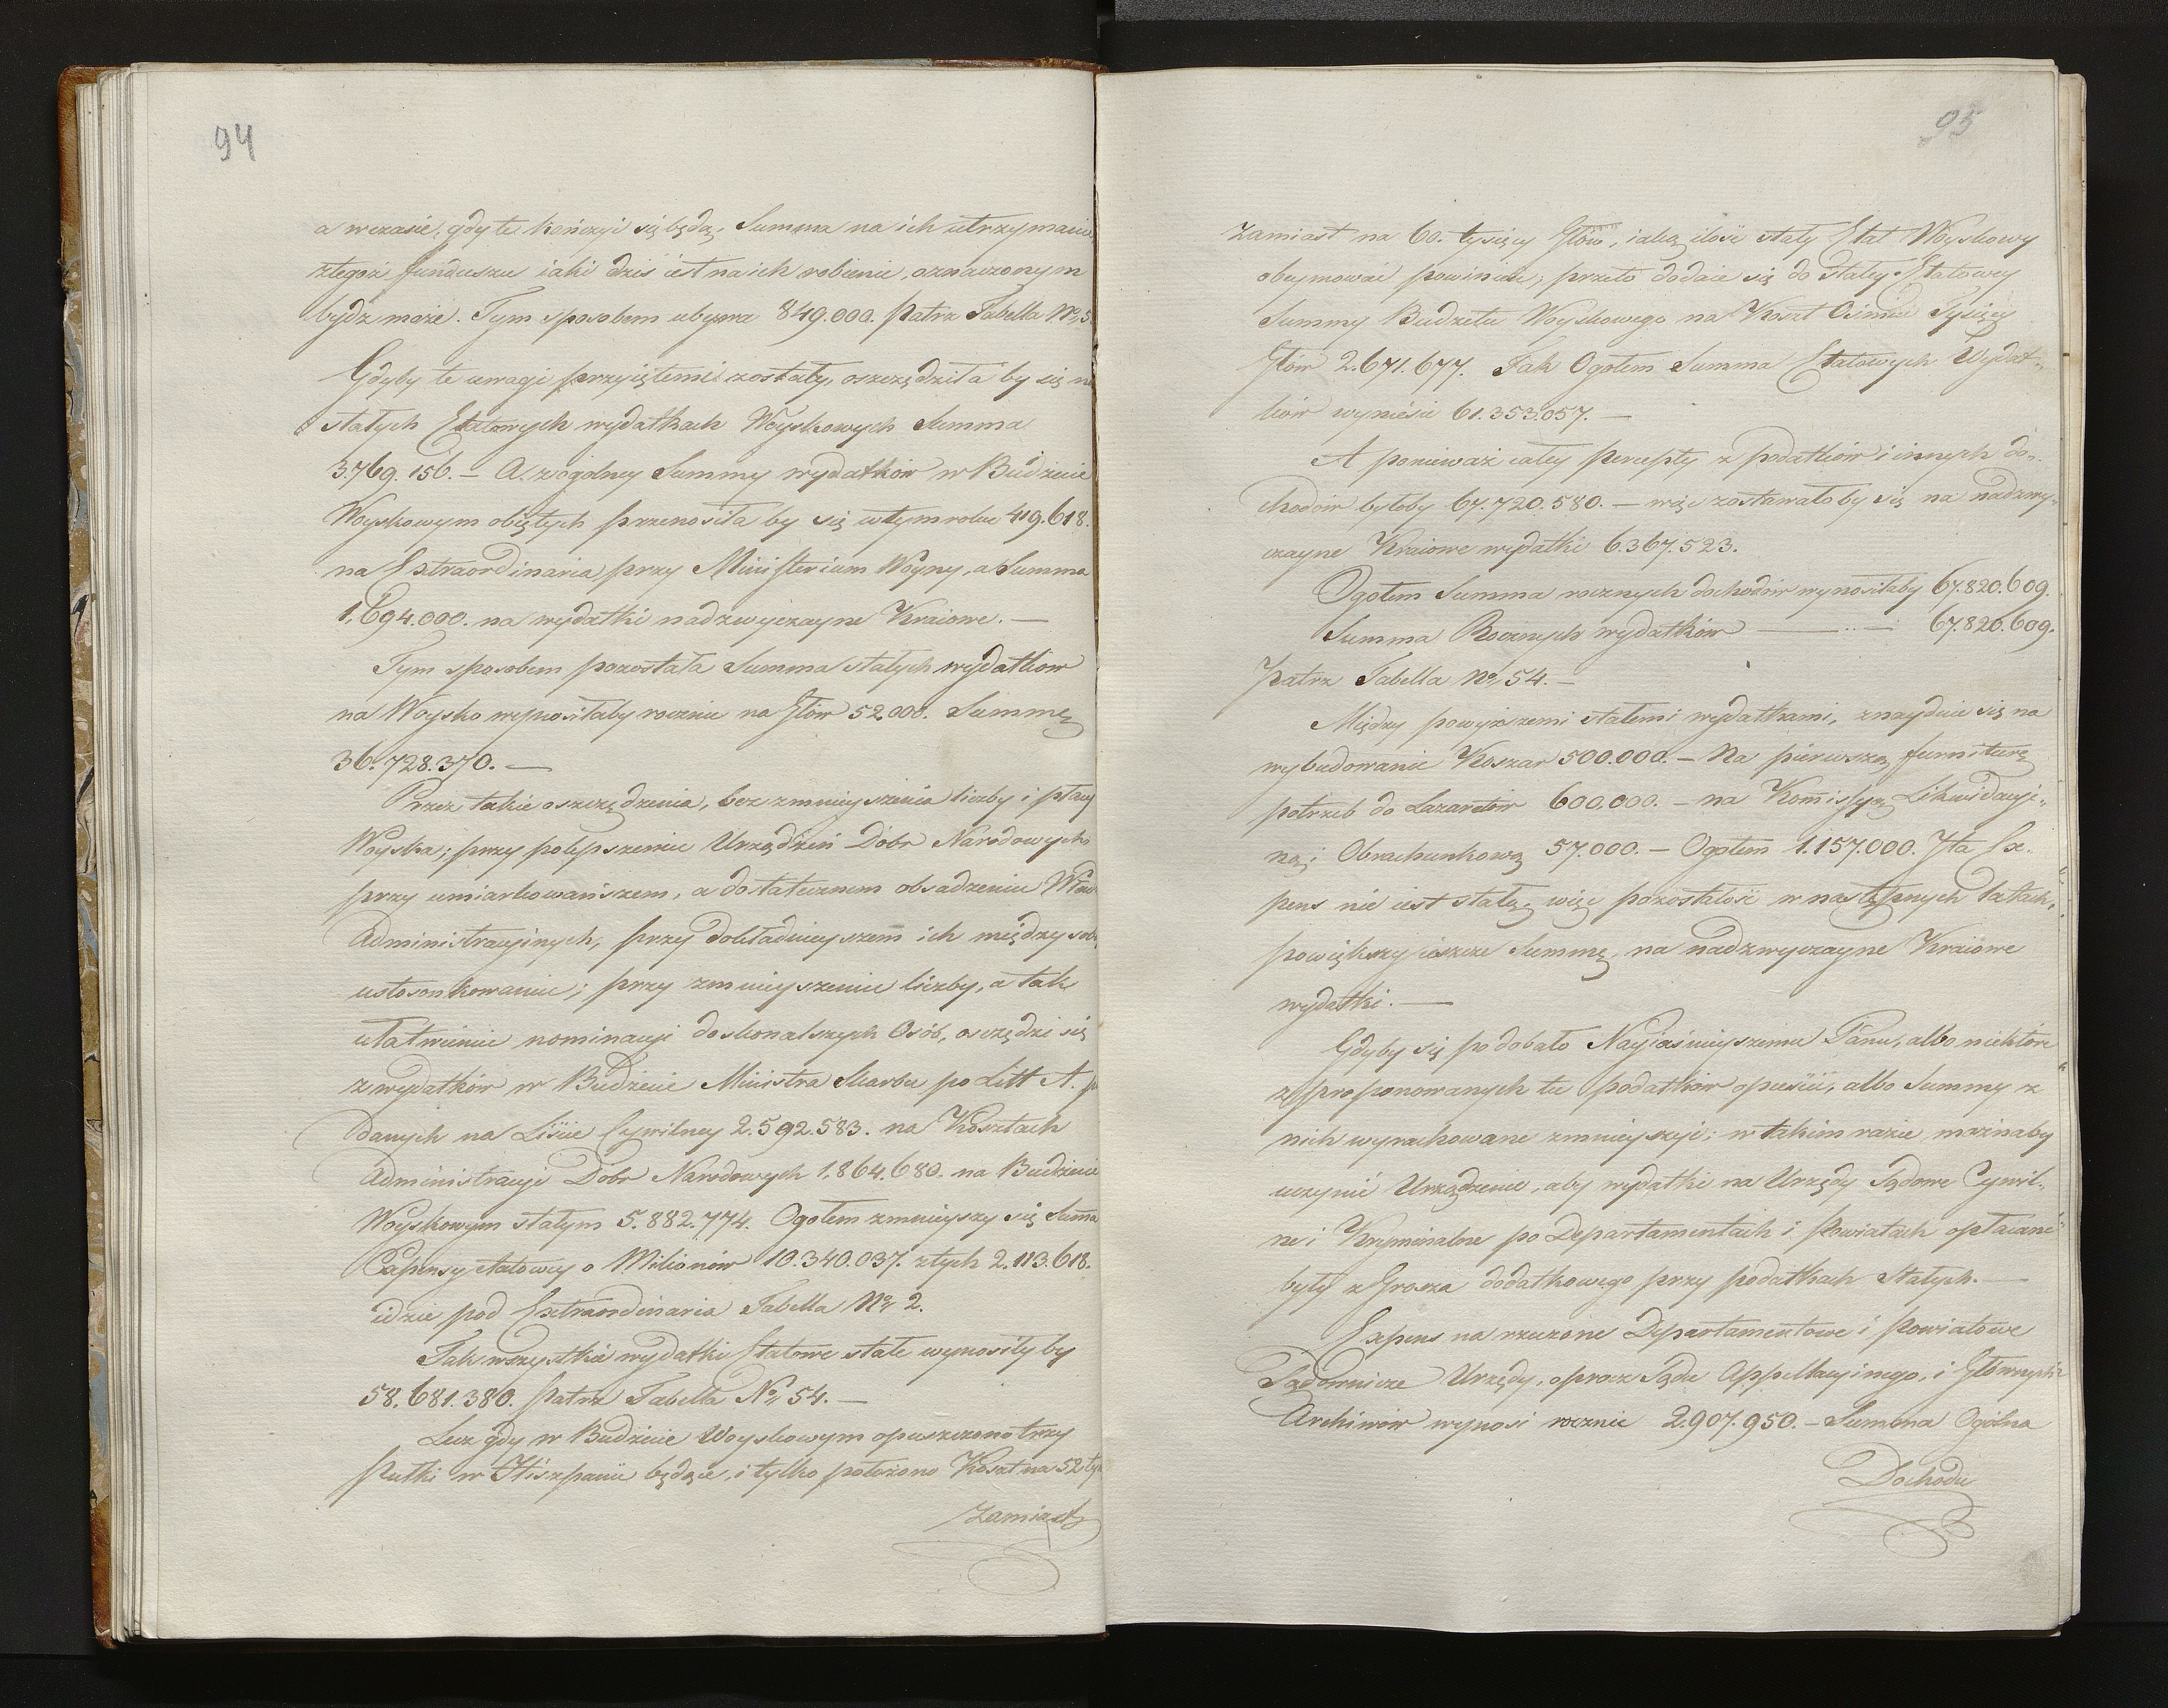 94
a wczasie, gdy te kończyć się będą, Summa na ich utrzymanie
ztegoż funduszu iaki dziś iest na ich robienie, oznaczonym
bydz może. Tym sposobem ubywa 849.000. patrz Tabella No 5
Gdyby te uwagi przyiętemi zostały, oszczędziła by się na
stałych Etatowych wydatkach Woyskowych Summa
3.769.156. – A z ogólney Summy wydatków w Budżecie
Woyskowym obiętych przenosiła by się w tym roku 419.618.
na Extraordinaria przy Ministerium Woyny, a Summa
1,694.000. na wydatki nadzwyczayne Kraiowe. —
Tym sposobem pozostała Summa stałych wydatków
na Woysko wynosiłaby rocznie na Głów 52,000. Summę
36.728.370. —
Przez takie oszczędzenia, bez zmnieyszenia liczby i płacy
Woyska; przy polepszeniu Urządzeń Dóbr Narodowych
przy umiarkowańszem, a dostatecznem obsadzeniu Władz
Administracyinych, przy dokładnieyszem ich między sobą
ustosonkowaniu; przy zmnieyszeniu liczby, a tak
ułatwieniu nominacyi doskonalszych Osób, oszczędzi się
z wydatków w Budżecie Ministra Skarbu po Litt A. po
danych na Liście Cywilney 2.592.583. na Kosztach
Administracyi Dobr Narodowych 1,864.680. na Budżecie
Woyskowym stałym 5.882.774. Ogołem zmnieyszy się Summa
Expensy etatowey o Milionów 10.340.037. ztych 2.113.618.
idzie pod Extraordinaria Tabella No 2.
Tak wszystkie wydatki Etatowe stałe wynosiły by
58.681.380. Patrz Tabella No 54. —
Lecz gdy w Budżecie Woyskowym opuszczono trzy
Pułki w Hiszpanii będące, i tylko położono Koszt na 52 tys
Zamiast
95
Zamiast na 60. tysięcy Głów, iaką ilość stały Etat Woyskowy
obeymować powinien, przeto dodaie się do Stałey Etatowey
Summy Budżetu Woyskowego na Koszt Ośmiu Tysięcy
Głów 2.671.677. Tak Ogołem Summa Etatowych Wydat„
ków wyniesie 61.353.057. —
A ponieważ całey percepty z podatków i innych do„
chodów byłoby 67.720.580. – więc zostawało by się na nadzwy„
czayne Kraiowe wydatki 6.367.523.
Ogołem Summa rocznych dochodów wynosiłaby 67.820.609.
Summa Rocznych wydatków — ..— 67.820.609.
Patrz Tabella No 54. —
Między powyższemi stałemi wydatkami, znayduie się na
wybudowanie Koszar 500.000. – Na pierwszą furniturę
potrzeb do Lazaretów 600.000. – na Kommissyą Likwidacyi„
ną i Obrachunkową 57.000. – Ogołem 1.157.000. Ita Ex„
pens nie iest stałą, więc pozostałość w następnych latach,
powiększy ieszcze Summę, na nadzwyczayne Kraiowe
wydatki. —
Gdyby się podobało Nayiaśnieyszemu Panu, albo niektóre
z proponowanych tu podatków opuścić, albo Summy z
nich wyrachowane zmnieyszyć; w takim razie możnaby
uczynić Urządzenie, aby wydatki na Urzędy Sądowe Cywil„
ne i Kryminalne po Departamentach i Powiatach opłacane
były z Grosza dodatkowego przy podatkach Stałych. —
Expens na rzeczone Departamentowe i Powiatowe
Sądownicze Urzędy, oprocz Sądu Appellacyinego, i Głównych
Archiwów wynosi rocznie 2.907.950. – Summa Ogólna
Dochodu